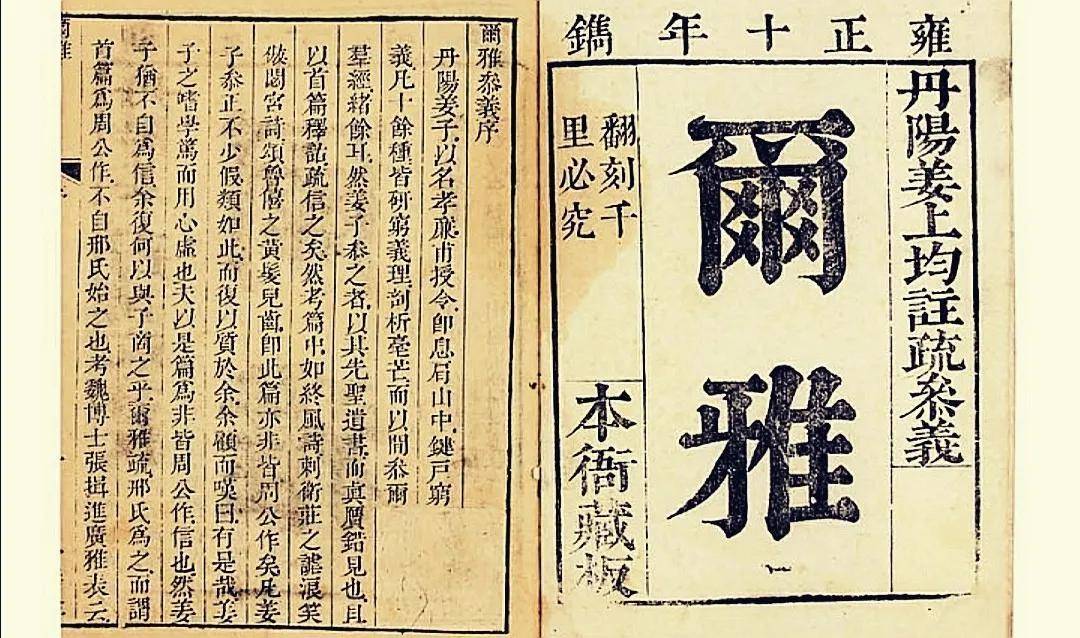 雍正十年鐫
丹陽姜上均註疏叅義
爾雅
一
翻刻千
里必究
本衙藏板
爾雅叅義序
丹陽姜子以名孝廉甫授令即息肩山中鍵戸窮
義凡十餘種皆研窮義理剖析毫芒而以間叅爾
羣經緒餘耳然姜子叅之者以其先聖遺書而真贋錯見也且
以首篇釋詁疏信之矣然考篇中如終風詩刺衛莊之謔浪笑
傲閟宮詩頌魯僖之黃髮兒齒即此篇亦非皆周公作矣凡姜
子叅正不少假類如此而復以質於余余顧而嘆曰有是哉姜
子之嗜學篤而用心虛也夫以是篇爲非皆周公作信也然姜
子猶不自爲信余復何以與子商之乎爾雅疏邢氏爲之而謂
首篇爲周公作不自邢氏始之也考魏博士張揖進廣雅表云